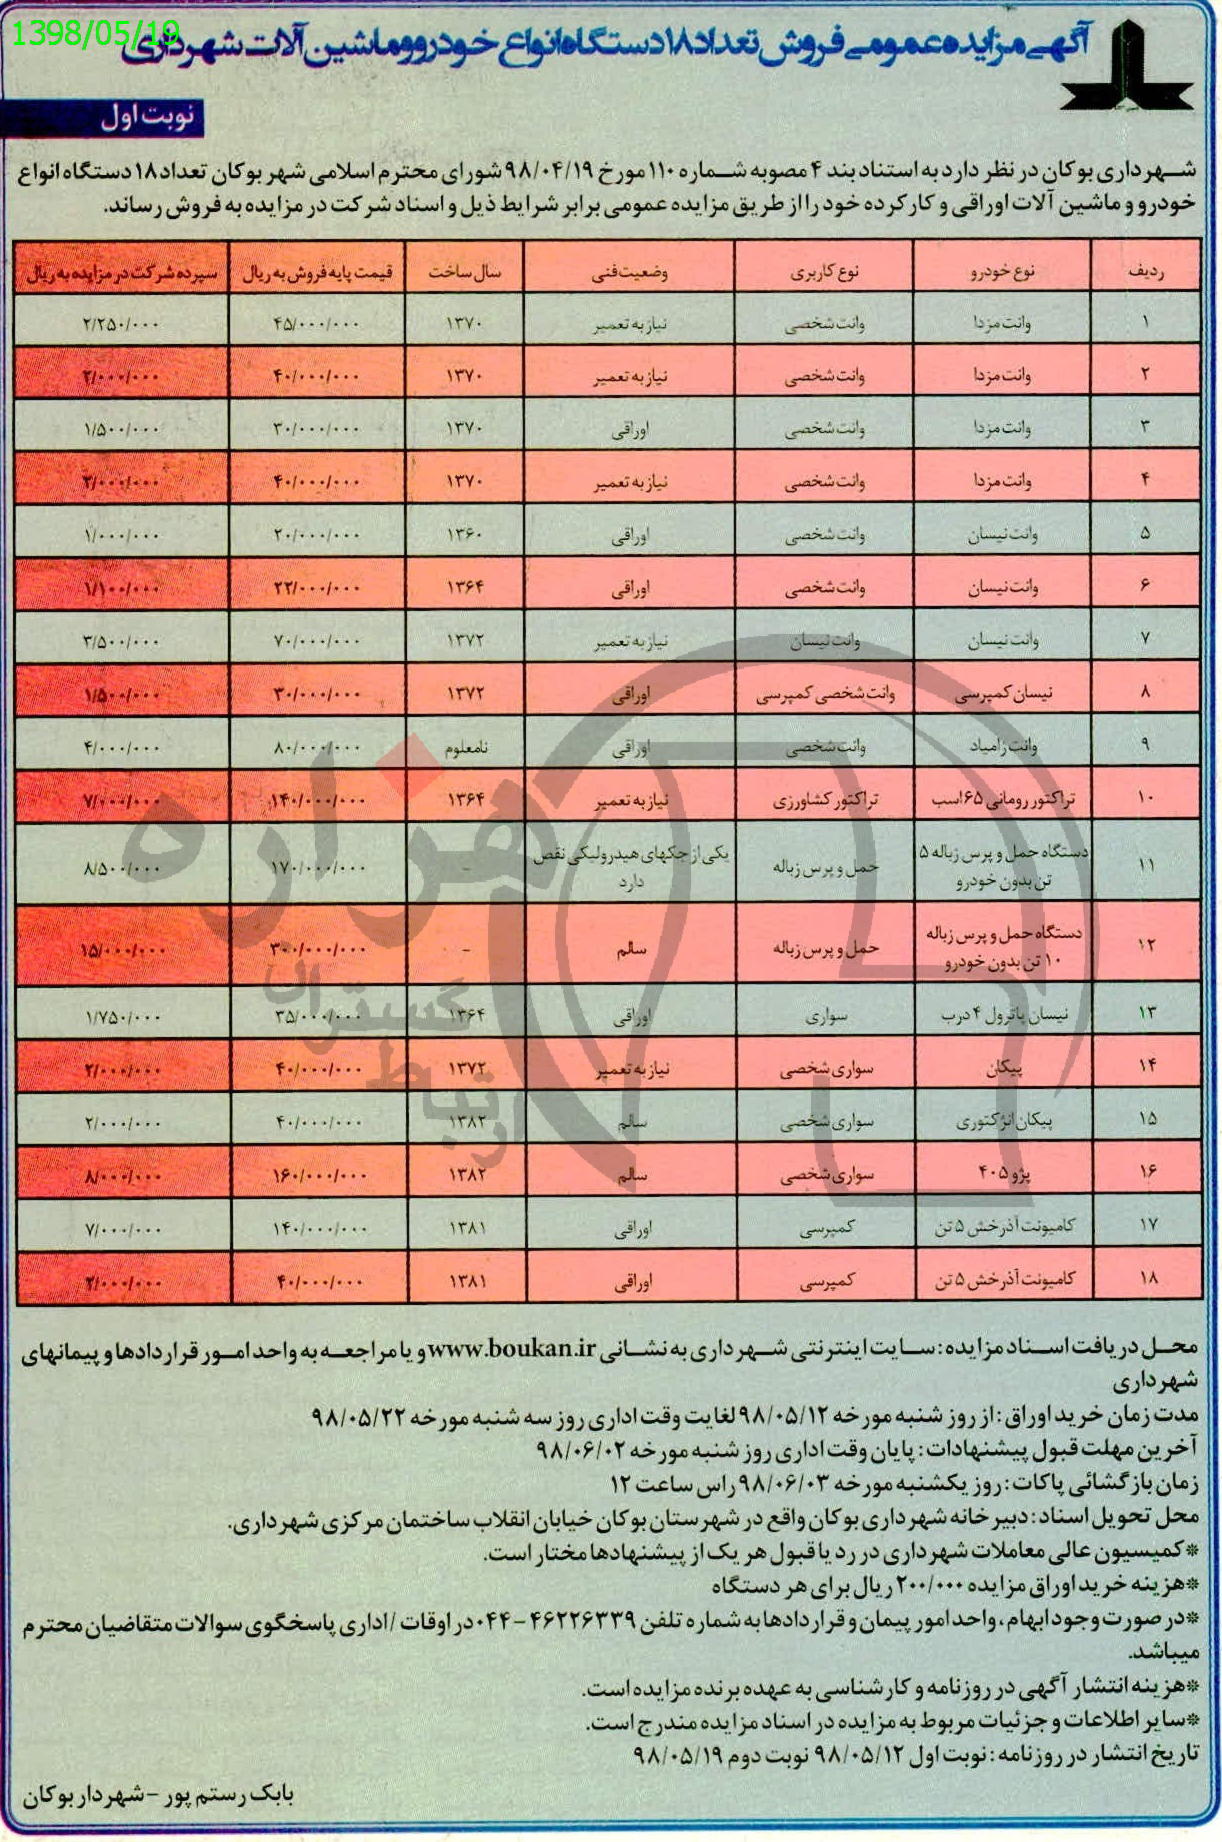 1398/05/19
آگهی مزایده عمومی فروش تعداد ۱۸ دستگاه انواع خودرو و ماشین آلات شهرداری
نوبت اول
شهرداری بوکان در نظر دارد به استناد بند ۴ مصوبه شماره ۱۱۰ مورخ ۹۸/۰۴/۱۹ شورای محترم اسلامی شهر بوکان تعداد ۱۸ دستگاه انواع
خودرو و ماشین آلات اوراقی و کارکرده خود را از طریق مزایده عمومی برابر شرایط ذیل و اسناد شرکت در مزایده به فروش رساند.
ردیف نوع خودرو نوع کاربری وضعیت فنی سال ساخت قیمت پایه فروش به ریال سپرده شرکت در مزایده به ریال
۱ وانت مزدا وانت شخصی نیاز به تعمیر ۱۳۷۰ ۴۵/۰۰۰/۰۰۰ ۲/۲۵۰/۰۰۰
۲ وانت مزدا وانت شخصی نیاز به تعمیر ۱۳۷۰ ۴۰/۰۰۰/۰۰۰ ۲/۰۰۰/۰۰۰
۳ وانت مزدا وانت شخصی اوراقی ۱۳۷۰ ۳۰/۰۰۰/۰۰۰ ۱/۵۰۰/۰۰۰
۴ وانت مزدا وانت شخصی نیاز به تعمیر ۱۳۷۰ ۴۰/۰۰۰/۰۰۰ ۲/۰۰۰/۰۰۰
۵ وانت نیسان وانت شخصی اوراقی ۱۳۶۰ ۲۰/۰۰۰/۰۰۰ ۱/۰۰۰/۰۰۰
۶ وانت نیسان وانت شخصی اوراقی ۱۳۶۴ ۲۲/۰۰۰/۰۰۰ ۱/۱۰۰/۰۰۰
۷ وانت نیسان وانت نیسان نیاز به تعمیر ۱۳۷۲ ۷۰/۰۰۰/۰۰۰ ۳/۵۰۰/۰۰۰
۸ نیسان کمپرسی وانت شخصی کمپرسی اوراقی ۱۳۷۲ ۳۰/۰۰۰/۰۰۰ ۱/۵۰۰/۰۰۰
۹ وانت زامیاد وانت شخصی اوراقی نامعلوم ۸۰/۰۰۰/۰۰۰ ۴/۰۰۰/۰۰۰
۱۰ تراکتور رومانی ۶۵ اسب تراکتور کشاورزی نیاز به تعمیر ۱۳۶۴ ۱۴۰/۰۰۰/۰۰۰ ۷/۰۰۰/۰۰۰
۱۱ دستگاه حمل و پرس زباله ۵ تن بدون خودرو حمل و پرس زباله یکی از جکهای هیدرولیکی نقص دارد - ۱۷۰/۰۰۰/۰۰۰ ۸/۵۰۰/۰۰۰
۱۲ دستگاه حمل و پرس زباله ۱۰ تن بدون خودرو حمل و پرس زباله سالم - ۳۰۰/۰۰۰/۰۰۰ ۱۵/۰۰۰/۰۰۰
۱۳ نیسان پاترول ۴ درب سواری اوراقی ۱۳۶۴ ۳۵/۰۰۰/۰۰۰ ۱/۷۵۰/۰۰۰
۱۴ پیکان سواری شخصی نیاز به تعمیر ۱۳۷۲ ۴۰/۰۰۰/۰۰۰ ۲/۰۰۰/۰۰۰
۱۵ پیکان انژکتوری سواری شخصی سالم ۱۳۸۲ ۴۰/۰۰۰/۰۰۰ ۲/۰۰۰/۰۰۰
۱۶ پژو ۴۰۵ سواری شخصی سالم ۱۳۸۲ ۱۶۰/۰۰۰/۰۰۰ ۸/۰۰۰/۰۰۰
۱۷ کامیونت آذرخش ۵ تن کمپرسی اوراقی ۱۳۸۱ ۱۴۰/۰۰۰/۰۰۰ ۷/۰۰۰/۰۰۰
۱۸ کامیونت آذرخش ۵ تن کمپرسی اوراقی ۱۳۸۱ ۴۰/۰۰۰/۰۰۰ ۲/۰۰۰/۰۰۰
هزاره
ارتباط گستران
محل دریافت اسناد مزایده: سایت اینترنتی شهرداری به نشانی www.boukan.ir و یا مراجعه به واحد امور قراردادها و پیمانهای
شهرداری
مدت زمان خرید اوراق: از روز شنبه مورخه ۹۸/۰۵/۱۲ لغایت وقت اداری روز سه شنبه مورخه ۹۸/۰۵/۲۲
آخرین مهلت قبول پیشنهادات: پایان وقت اداری روز شنبه مورخه ۹۸/۰۶/۰۲
زمان بازگشائی پاکات: روز یکشنبه مورخه ۹۸/۰۶/۰۳ راس ساعت ۱۲
محل تحویل اسناد: دبیرخانه شهرداری بوکان واقع در شهرستان بوکان خیابان انقلاب ساختمان مرکزی شهرداری.
*کمیسیون عالی معاملات شهرداری در رد یا قبول هر یک از پیشنهادها مختار است.
*هزینه خرید اوراق مزایده ۲۰۰/۰۰۰ ریال برای هر دستگاه
*در صورت وجود ابهام، واحد امور پیمان و قراردادها به شماره تلفن ۴۶۲۲۶۳۳۹-۰۴۴ در اوقات /اداری پاسخگوی سوالات متقاضیان محترم
میباشد.
*هزینه انتشار آگهی در روزنامه و کارشناسی به عهده برنده مزایده است.
*سایر اطلاعات و جزئیات مربوط به مزایده در اسناد مزایده مندرج است.
تاریخ انتشار در روزنامه: نوبت اول ۹۸/۰۵/۱۲ نوبت دوم ۹۸/۰۵/۱۹
بابک رستم پور - شهردار بوکان